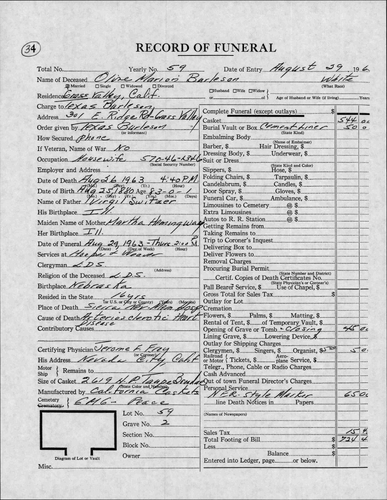 34
RECORD OF FUNERAL
Total No. Yearly No. 59 Date of Entry August 29 196
Name of Deceased Olive Marion Burleson White
Married Single Widowed Divorced (What Race)
Residence Grass Valley, Calif. Husband Wife Widow
Age of Husband or Wife (if living)
Charge to Texas Burleson
Address 301 E. Ridge Rd Grass Valley
Order given by Texas Burleson
How Secured phone
If Veteran, Name of War No
Occupation Housewife 570-46-
(Social Security Number)
Employer and Address
Date of Death Aug 26 1963 4:40 PM
Date of Birth Aug 25 1880 Age 83-0-1
Name of Father Virgil
His Birthplace Ill
Maiden Name of Mother Martha Hemingway
Her Birthplace Ill.
Date of Funeral Aug 29, 1963 - Thurs 2:00 P
Services at Hooper & Weaver
Clergyman L.D.S.
(Address)
Religion of the Deceased L.D.S.
Birthplace Nebraska
Resided in the State 16 yrs
Place of Death Sierra Nev Mem Hosp
Cause of Death Arteriosclerotic Heart
Disease
Contributory Causes
Certifying Physician Jerome E.
His Address Nevada City Calif
Motor
Ship Remains to
Size of Casket 2619 H.P.
Manufactured by California Casket
Cemetery
Crematory Peace
Lot No. 59
Grave No. 2
Section No.
Block No.
Owner
Diagram of Lot or Vault
Misc.
Complete Funeral (except outlays) $
Casket 544 00
Burial Vault or Box Cement liner 50 0
(State Kind)
Embalming Body
(Name of Embalmer)
Barber, $ Hair Dressing, $
Dressing Body, $ Underwear, $
Suit or Dress
(State Kind and Color)
Slippers, $ Hose, $
Folding Chairs, $ Tarpaulin, $
Candelabrum, $ Candles, $
Door Spray, $ Gloves, $
Funeral Car, $ Ambulance, $
Limousines to Cemetery @ $
Extra Limousines @ $
Autos to R. R. Station @ $
Getting Remains from
Taking Remains to
Trip to Coroner's Inquest
Delivering Box to
Deliver Flowers to
Removal Charges
Procuring Burial Permit
(State Number and District)
Certif. Copies of Death Certificates No.
(State Physician's or Coroner's)
Pall Bearer Service, $ Use of Chapel, $
Gross Total for Sales Tax
Outlay for Lot
Cremation
Flowers, $ Palms, $ Matting, $
Rental of Tent, $ of Temporary Vault, $
Opening of Grave or Tomb & closing 45 00
Lining Grave, $ Lowering Device, $
Outlay for Shipping Charges
Clergymen, $ Singers, $ Organist, $ 5 0
Railroad or Motor Tickets, $ Aeroplane Service, $
Telegr., Phone, Cable or Radio Charges
Cash Advanced
Out of town Funeral Director's Charges
Personal Service
Style Marker 65 0
line Death Notices in Papers
(Names of Newspapers)
Sales Tax 15
Total Footing of Bill $ 724
Less
Balance $
Entered into Ledger, page or below.